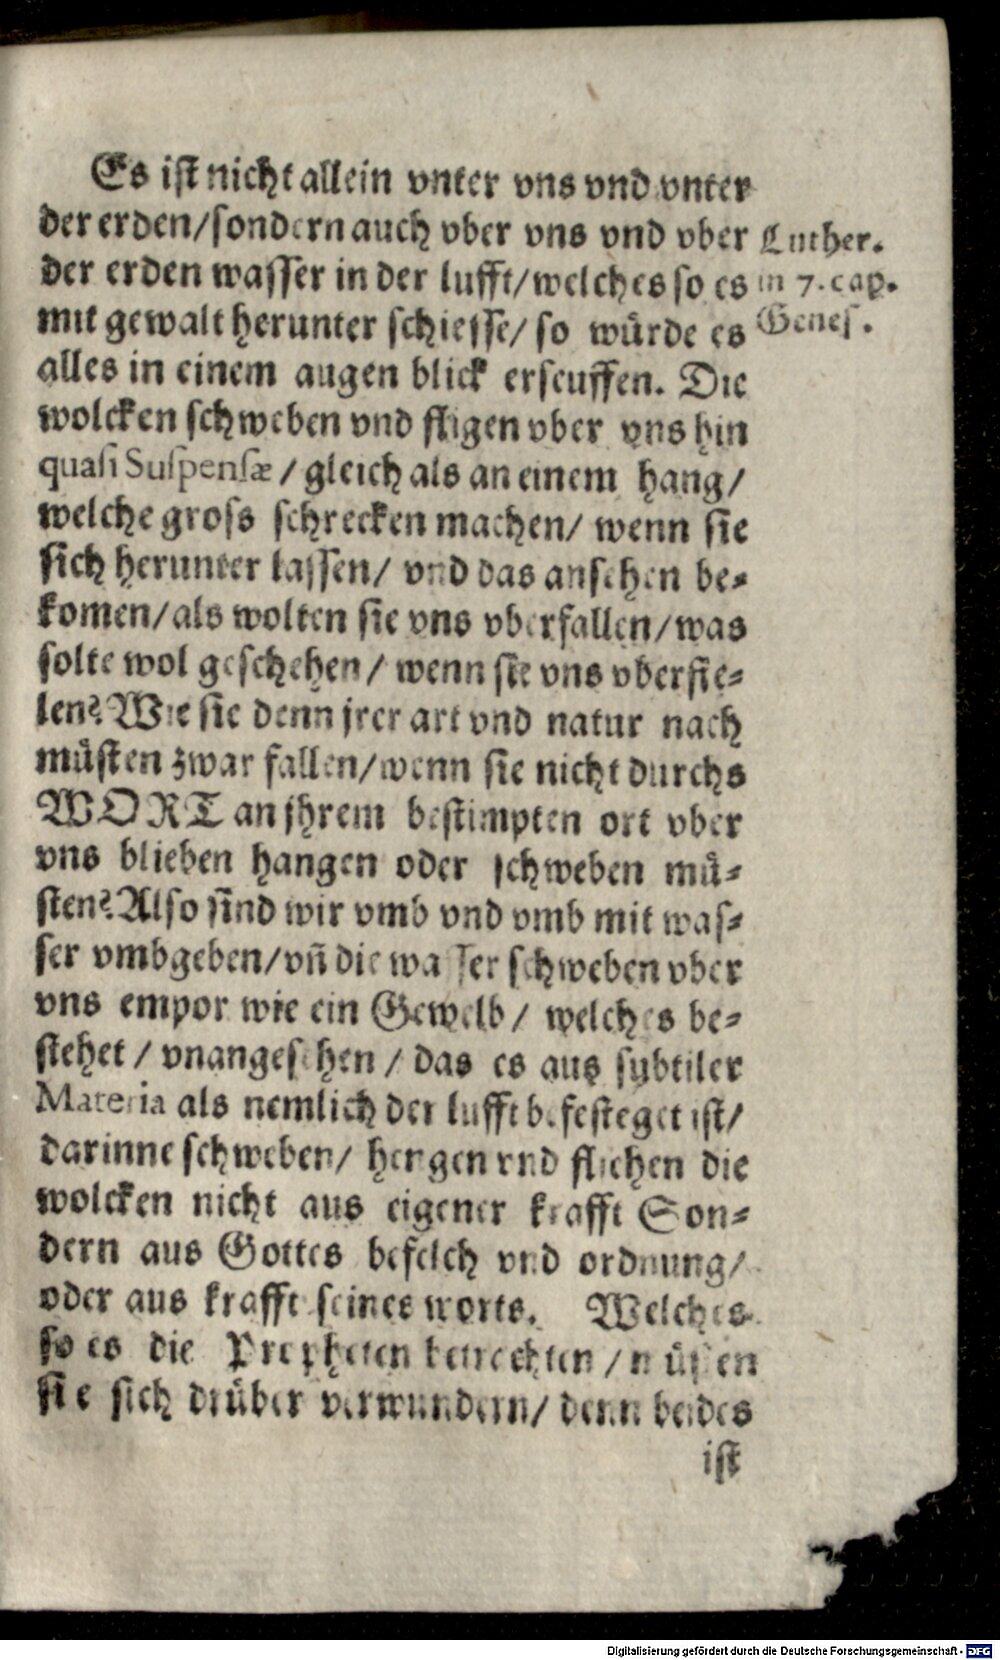 Es ist nicht allein vnter vns vnd vnter
der erden/sondern auch vber vns vnd vber
der erden wasser in der lufft/welches so es
mit gewalt herunter schiesse/ so würde es
alles in einem augen blick erseuffen. Die
wolcken schweben vnd fligen vber vns hin
quasi Suspensæ / gleich als an einem hang/
welche gross schrecken machen/ wenn sie
sich herunter lassen/ vnd das ansehen be-
komen/als wolten sie vns vberfallen/was
solte wol geschehen/ wenn sie vns vberfie-
len? Wie sie denn jrer art vnd natur nach
müsten zwar fallen/wenn sie nicht durchs
WORT an jhrem bestimpten ort vber
vns blieben hangen oder schweben mü-
sten? Also sind wir vmb vnd vmb mit was-
ser vmbgeben/vñ die wasser schweben vber
vns empor wie ein Gewelb / welches be-
stehet / vnangesehen / das es aus subtiler
Materia als nemlich der lufft befesteget ist/
darinne schweben/ hengen vnd fliehen die
wolcken nicht aus eigener krafft Son-
dern aus Gottes befelch vnd ordnung/
oder aus krafft seines worts. Welches
so es die Propheten betrechten / müssen
sie sich drüber verwundern/ denn beides
ist
Luther.
in 7. cap.
Genes.
Digitalisierung gefördert durch die Deutsche Forschungsgemeinschaft - DFG